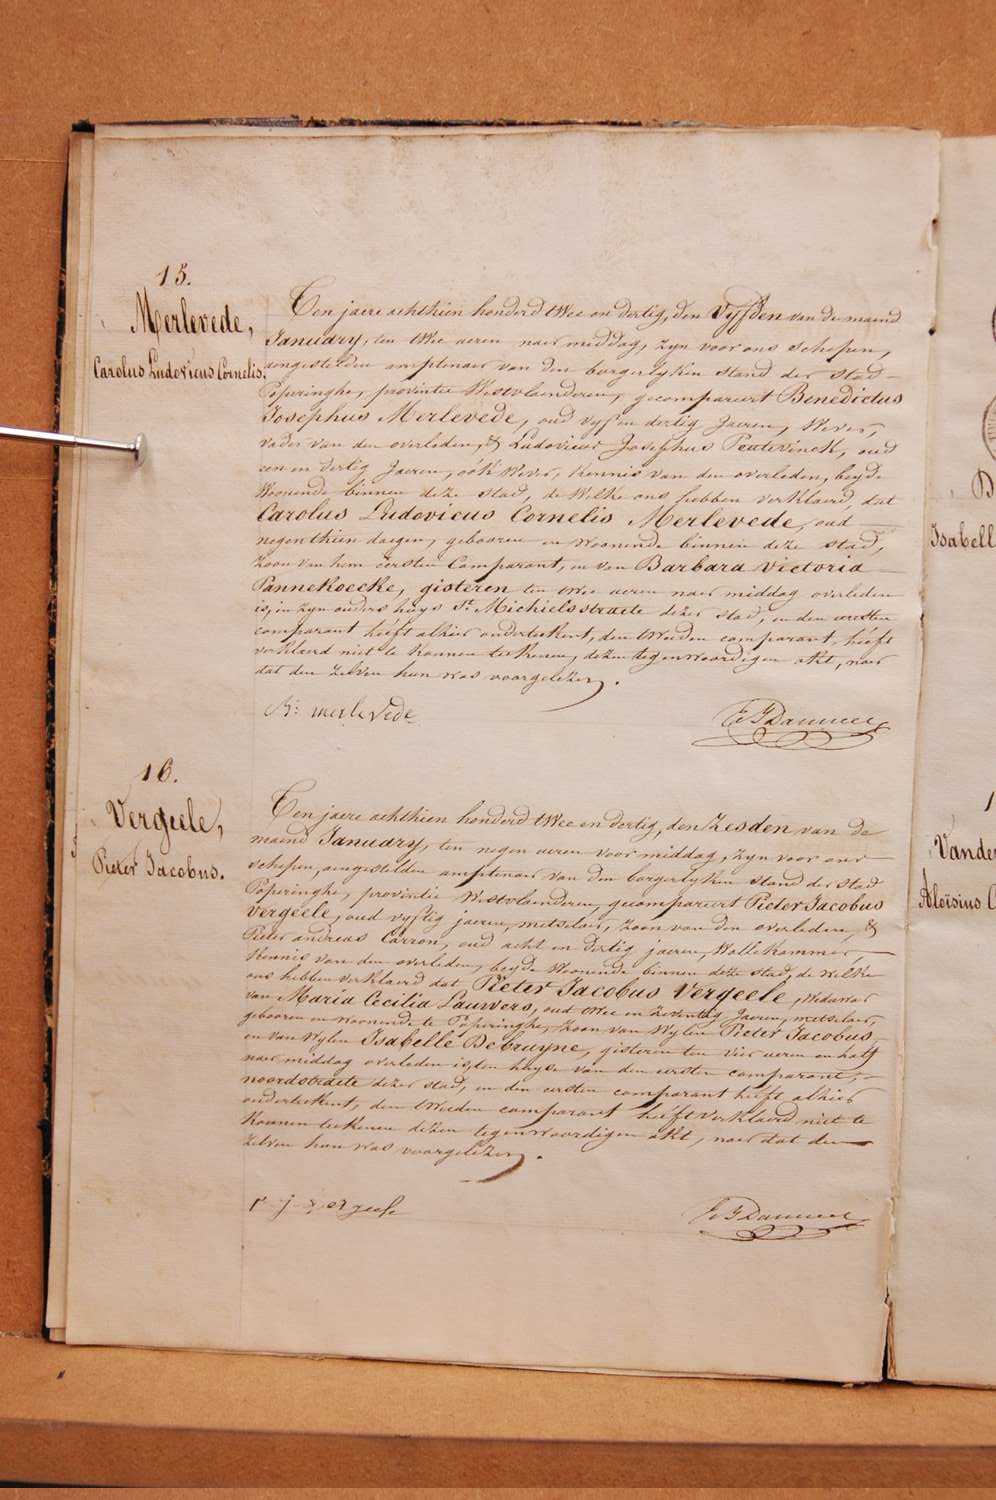 15.
Merlevede,
Carolus Ludovicus Cornelis.
Ten jaere achthien honderd twee en dertig, den Vyfden van de maend
January, ten twee ueren naer middag, zyn voor ons schepen,
aengestelden amptenaer van den borgerlyken stand der stad
Poperinghe, provintie Westvlaenderen, gecompareert Benedictus
Josephus Merlevede, oud vyf en dertig Jaeren, Wever,
vader van den overleden, & Ludovicus Josephus Peutevinck, oud
een en dertig Jaeren, oók Wever, kennis van den overleden, beyde
Woonende binnen deze stad, de Welke ons hebben verklaerd, dat
Carolus Ludovicus Cornelis Merlevede, oud
negenthien daegen, gebooren en woonende binnen deze stad,
zoon van hem eersten Comparant, en van Barbara Victoria
Pannekoecke, gisteren ten twee ueren naer middag overleden
is, in zyn ouders huys St. Michielsstraete dezer stad, en den eersten
comparant heéft alhier onderteekent, den tweeden comparant heéft
verklaerd niet te konnen teekenen, dezen tegenwoordigen akt, naer
dat den zelven hun was voorgelezen.
B: merlevede
16.
Vergeele,
Pieter Jacobus.
Ten jaere achthien honderd twee en dertig, den Zesden van de
maend January, ten negen ueren voor middag, zyn voor ons
schepen, aengestelden amptenaer van den borgerlyken stand der stad
Poperinghe, provintie Westvlaenderen, gecompareert Pieter Jacobus
Vergeele, oud vyftig jaeren, metselaer, zoon van den overleden, &
Pieter andreas Carron, oud acht en dertig jaeren, Wollekammer,
Kennis van den overleden, beyde Woonende binnen deze stad, de welke
ons hebben verklaerd dat Pieter Jacobus Vergeele, Weduwaer
van Maria Cecilia Lauwers, oud twee en zeventig Jaeren, metselaer,
gebooren en woonende te Poperinghe, Zoon van Wylen Pieter Jacobus,
en van Wylen Isabelle Debruyne, gisteren ten vier ueren en half
naer middag overleden is, ten huyse van den eersten comparant,
noordstraete dezer stad, en den eersten comparant heéft alhier
onderteekent, den tweeden comparant heéft verklaerd niet te
Konnen teekenen dezen tegenwoordigen akt, naer dat den
zelven hun was voorgelezen.
p j vergeele
Isabell
Vander
Aloïsius C